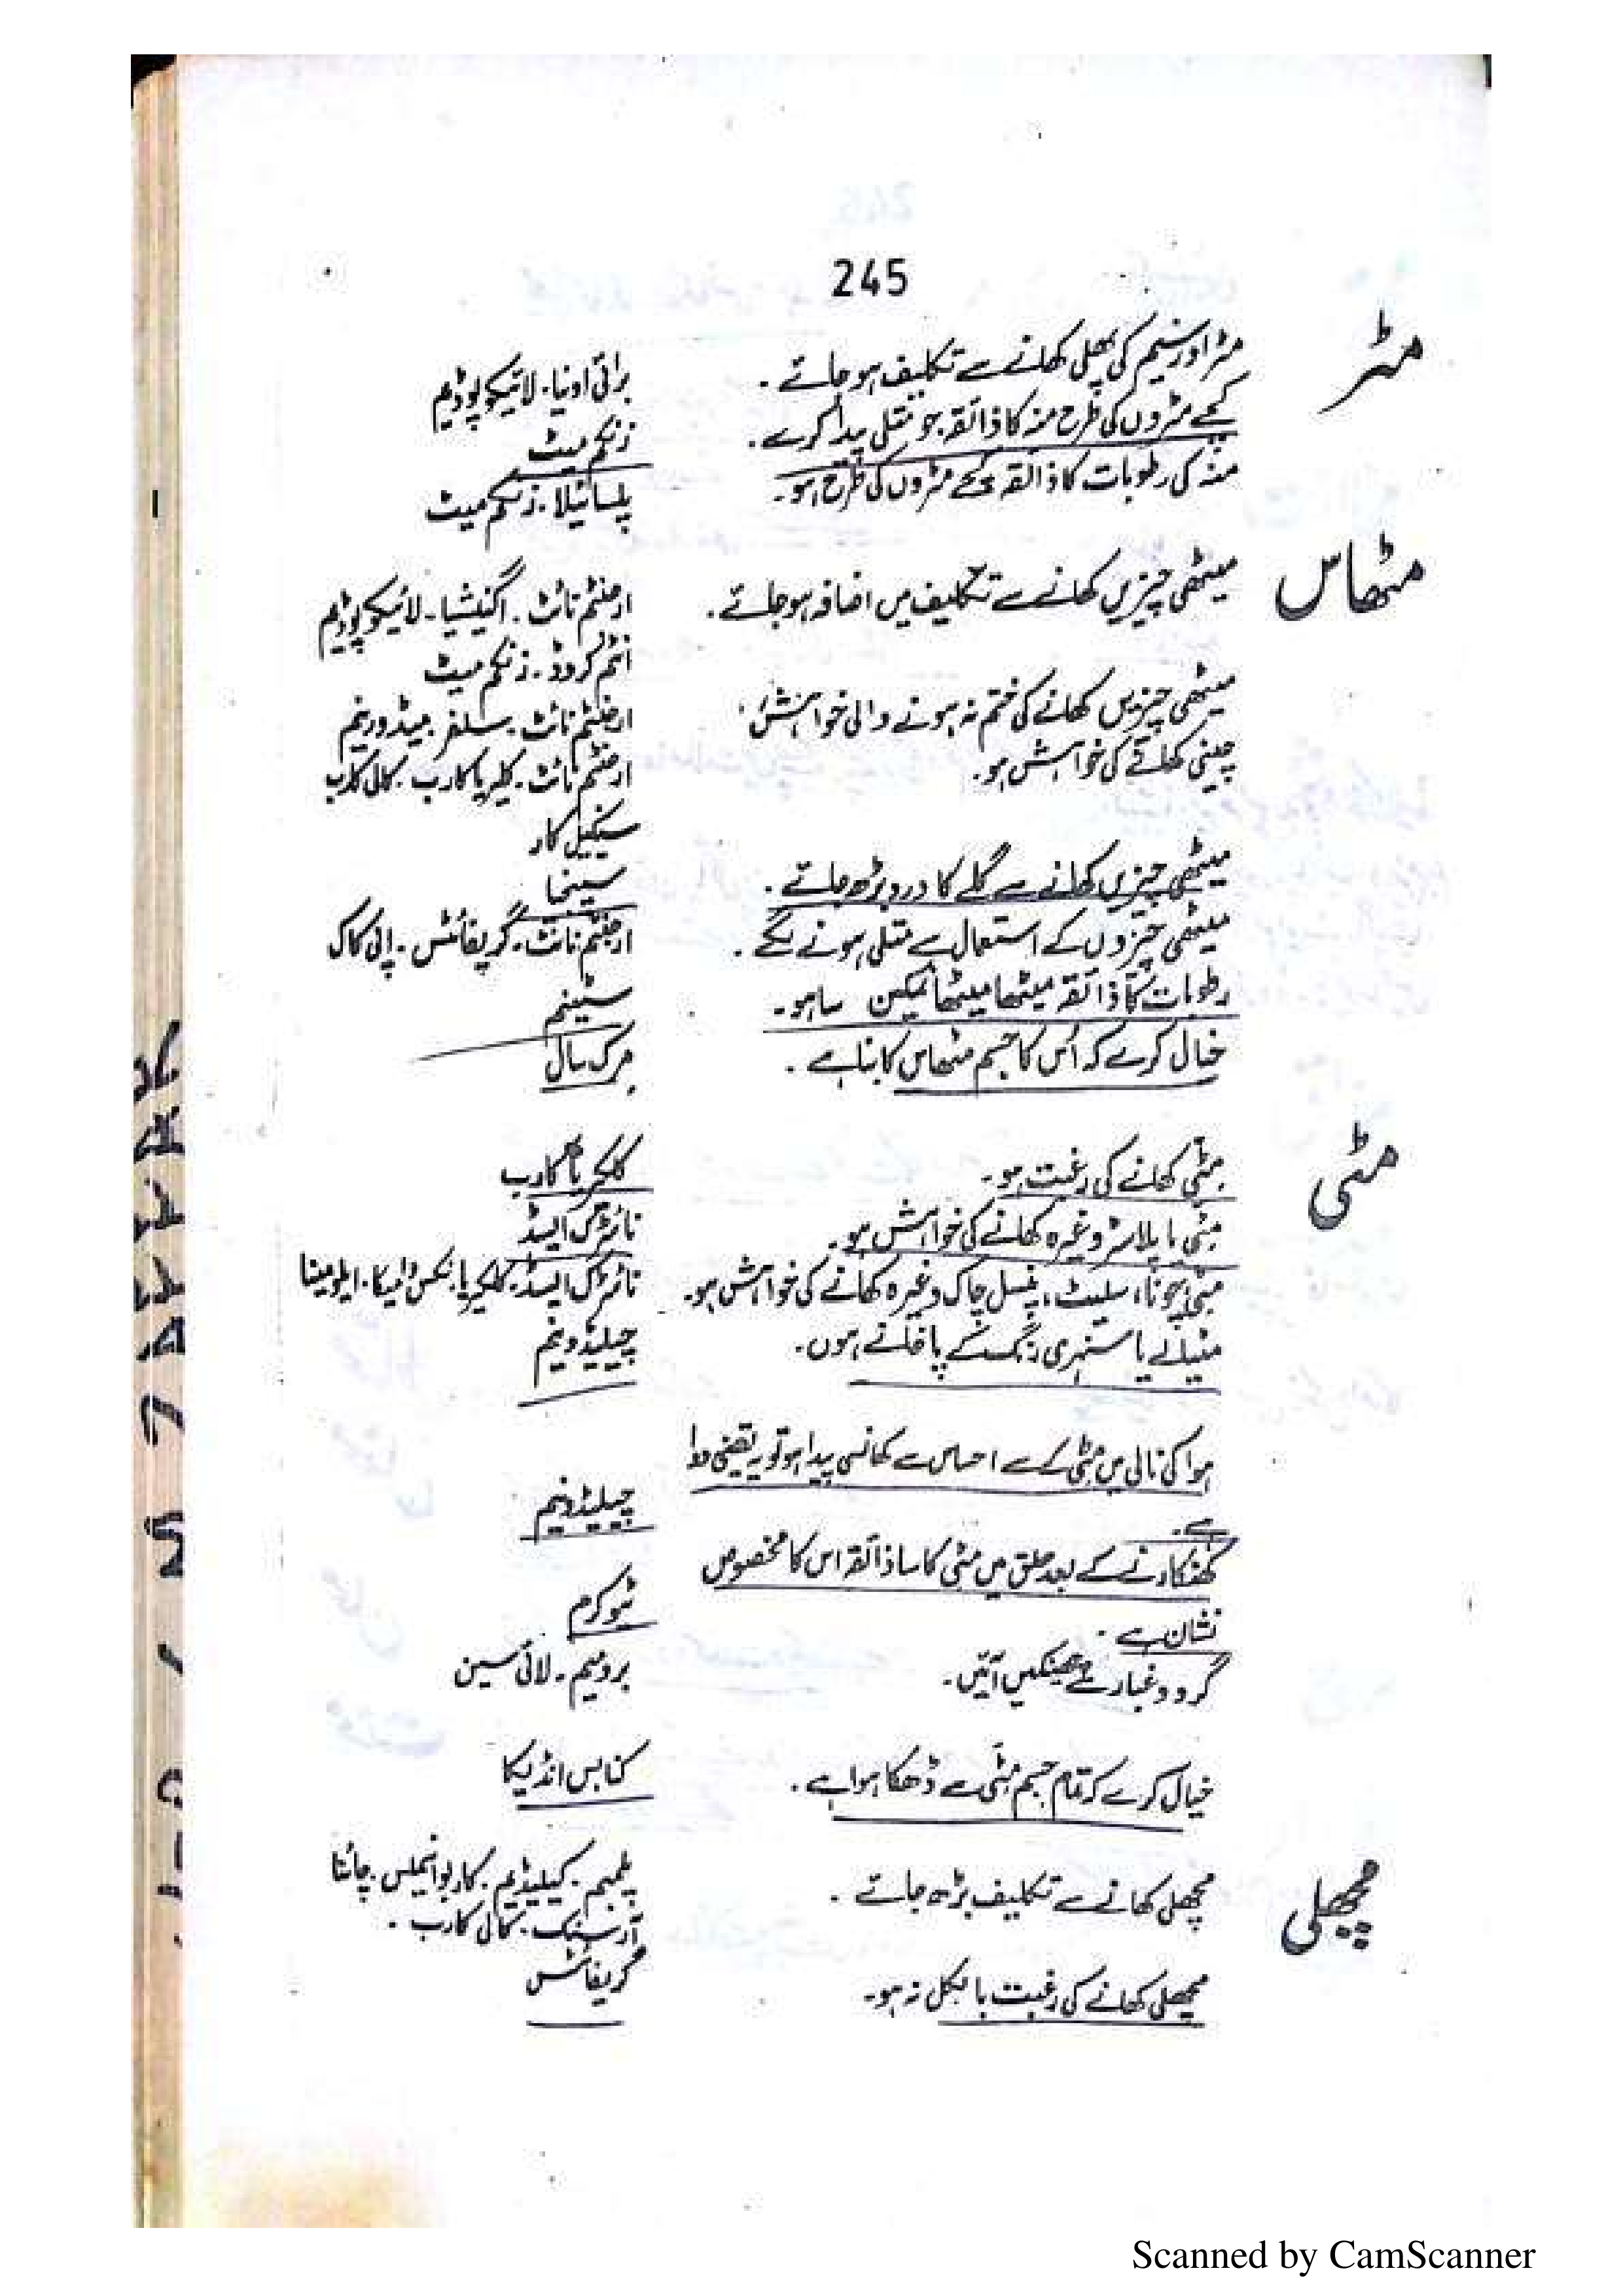 245
مٹر
مٹر اور سیم کی پھلی کھانے سے تکلیف ہو جائے۔ برائی اونیا۔ لائیکوپوڈیم
کچے مٹروں کی طرح منہ کا ذائقہ جو متلی پیدا کرے۔ زنکم میٹ
منہ کی رطوبات کا ذائقہ کچے مٹروں کی طرح ہو۔ پلساٹیلا۔ زنکم میٹ
مٹھاس
میٹھی چیزیں کھانے سے تکلیف میں اضافہ ہو جائے۔ ارجنٹم نائٹ۔ اگنیشیا۔ لائیکوپوڈیم
انٹم کروڈ۔ زنکم میٹ
میٹھی چیزیں کھانے کی ختم نہ ہونے والی خواہش، ارجنٹم نائٹ۔ سلفر۔ میڈورینم
چینی کھانے کی خواہش ہو۔ ارجنٹم نائٹ۔ کلیریا کارب۔ کالی کارب
سیکیل کار
میٹھی چیزیں کھانے سے گلے کا درد بڑھ جائے۔ سپنجیا
میٹھی چیزوں کے استعمال سے متلی ہونے لگے۔ ارجنٹم نائٹ۔ گریفائٹس۔ اپی کاک
رطوبات کا ذائقہ میٹھا میٹھا نمکین سا ہو۔ سٹینم
خیال کرے کہ اُس کا جسم مٹھاس کا بنا ہے۔ مرک سال
مٹی
مٹی کھانے کی رغبت ہو۔ کلکیریا کارب
مٹی یا پلاستر وغیرہ کھانے کی خواہش ہو۔ نائٹرک ایسڈ
مٹی، چونا، سلیٹ، پنسل چاک وغیرہ کھانے کی خواہش ہو۔ نائٹرک ایسڈ۔ کلکیریا۔ نکس وامیکا۔ ایلومینا
مٹیالے یا سنہری رنگت کے پاخانے ہوں۔ چیلیڈونیم
ہوا کی نالی میں مٹی کے سے احساس سے کھانسی پیدا ہو تو یہ یقینی دوا
ہے۔ چیلیڈونیم
کھنکارنے کے بعد حلق میں مٹی کا سا ذائقہ اس کا مخصوص
نشان ہے۔ ٹیوکرم
گرد و غبار سے چھینکیں آئیں۔ برومیم۔ لائی سین
خیال کرے کہ تمام جسم مٹی سے ڈھکا ہوا ہے۔ کنابس انڈیکا
مچھلی
مچھلی کھانے سے تکلیف بڑھ جائے۔ پلمبم۔ کیلیڈیم۔ کاربو انیملس۔ چائنا
آرسنک۔ کالی کارب۔
مچھلی کھانے کی رغبت بالکل نہ ہو۔ گریفائٹس
Scanned by CamScanner